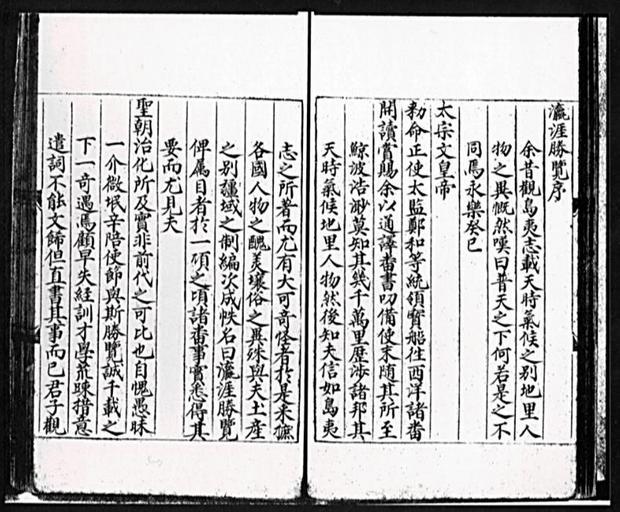 瀛涯勝覽序
余昔觀島夷志載天時氣候之别地里人
物之異慨然嘆曰普天之下何若是之不
同焉永樂癸巳
太宗文皇帝
勑命正使太監鄭和等統領寳船往西洋諸番
開讀賞賜余以通譯番書叨備使末隨其所至
鯨波浩渺莫知其幾千萬里歷涉諸邦其
天時氣候地里人物然後知夫信如島夷
志之所著而尤有大可竒怪者於是采摭
各國人物之醜美壤俗之異殊與夫土産
之别疆域之制編次成帙名曰瀛涯勝覽
俾属目者於一頃之頃諸番事實悉得其
要而尤見夫
聖朝治化所及實非前代之可比也自愧愚昧
一介微氓辛陪使節與斯勝覽誠千載之
下一奇遇焉顧早失經訓才學荒踈措意
遣詞不能文飾但直書其事而已君子觀